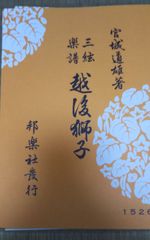 宮城道雄著
三絃
楽譜
越後獅子
邦楽社發行
1526